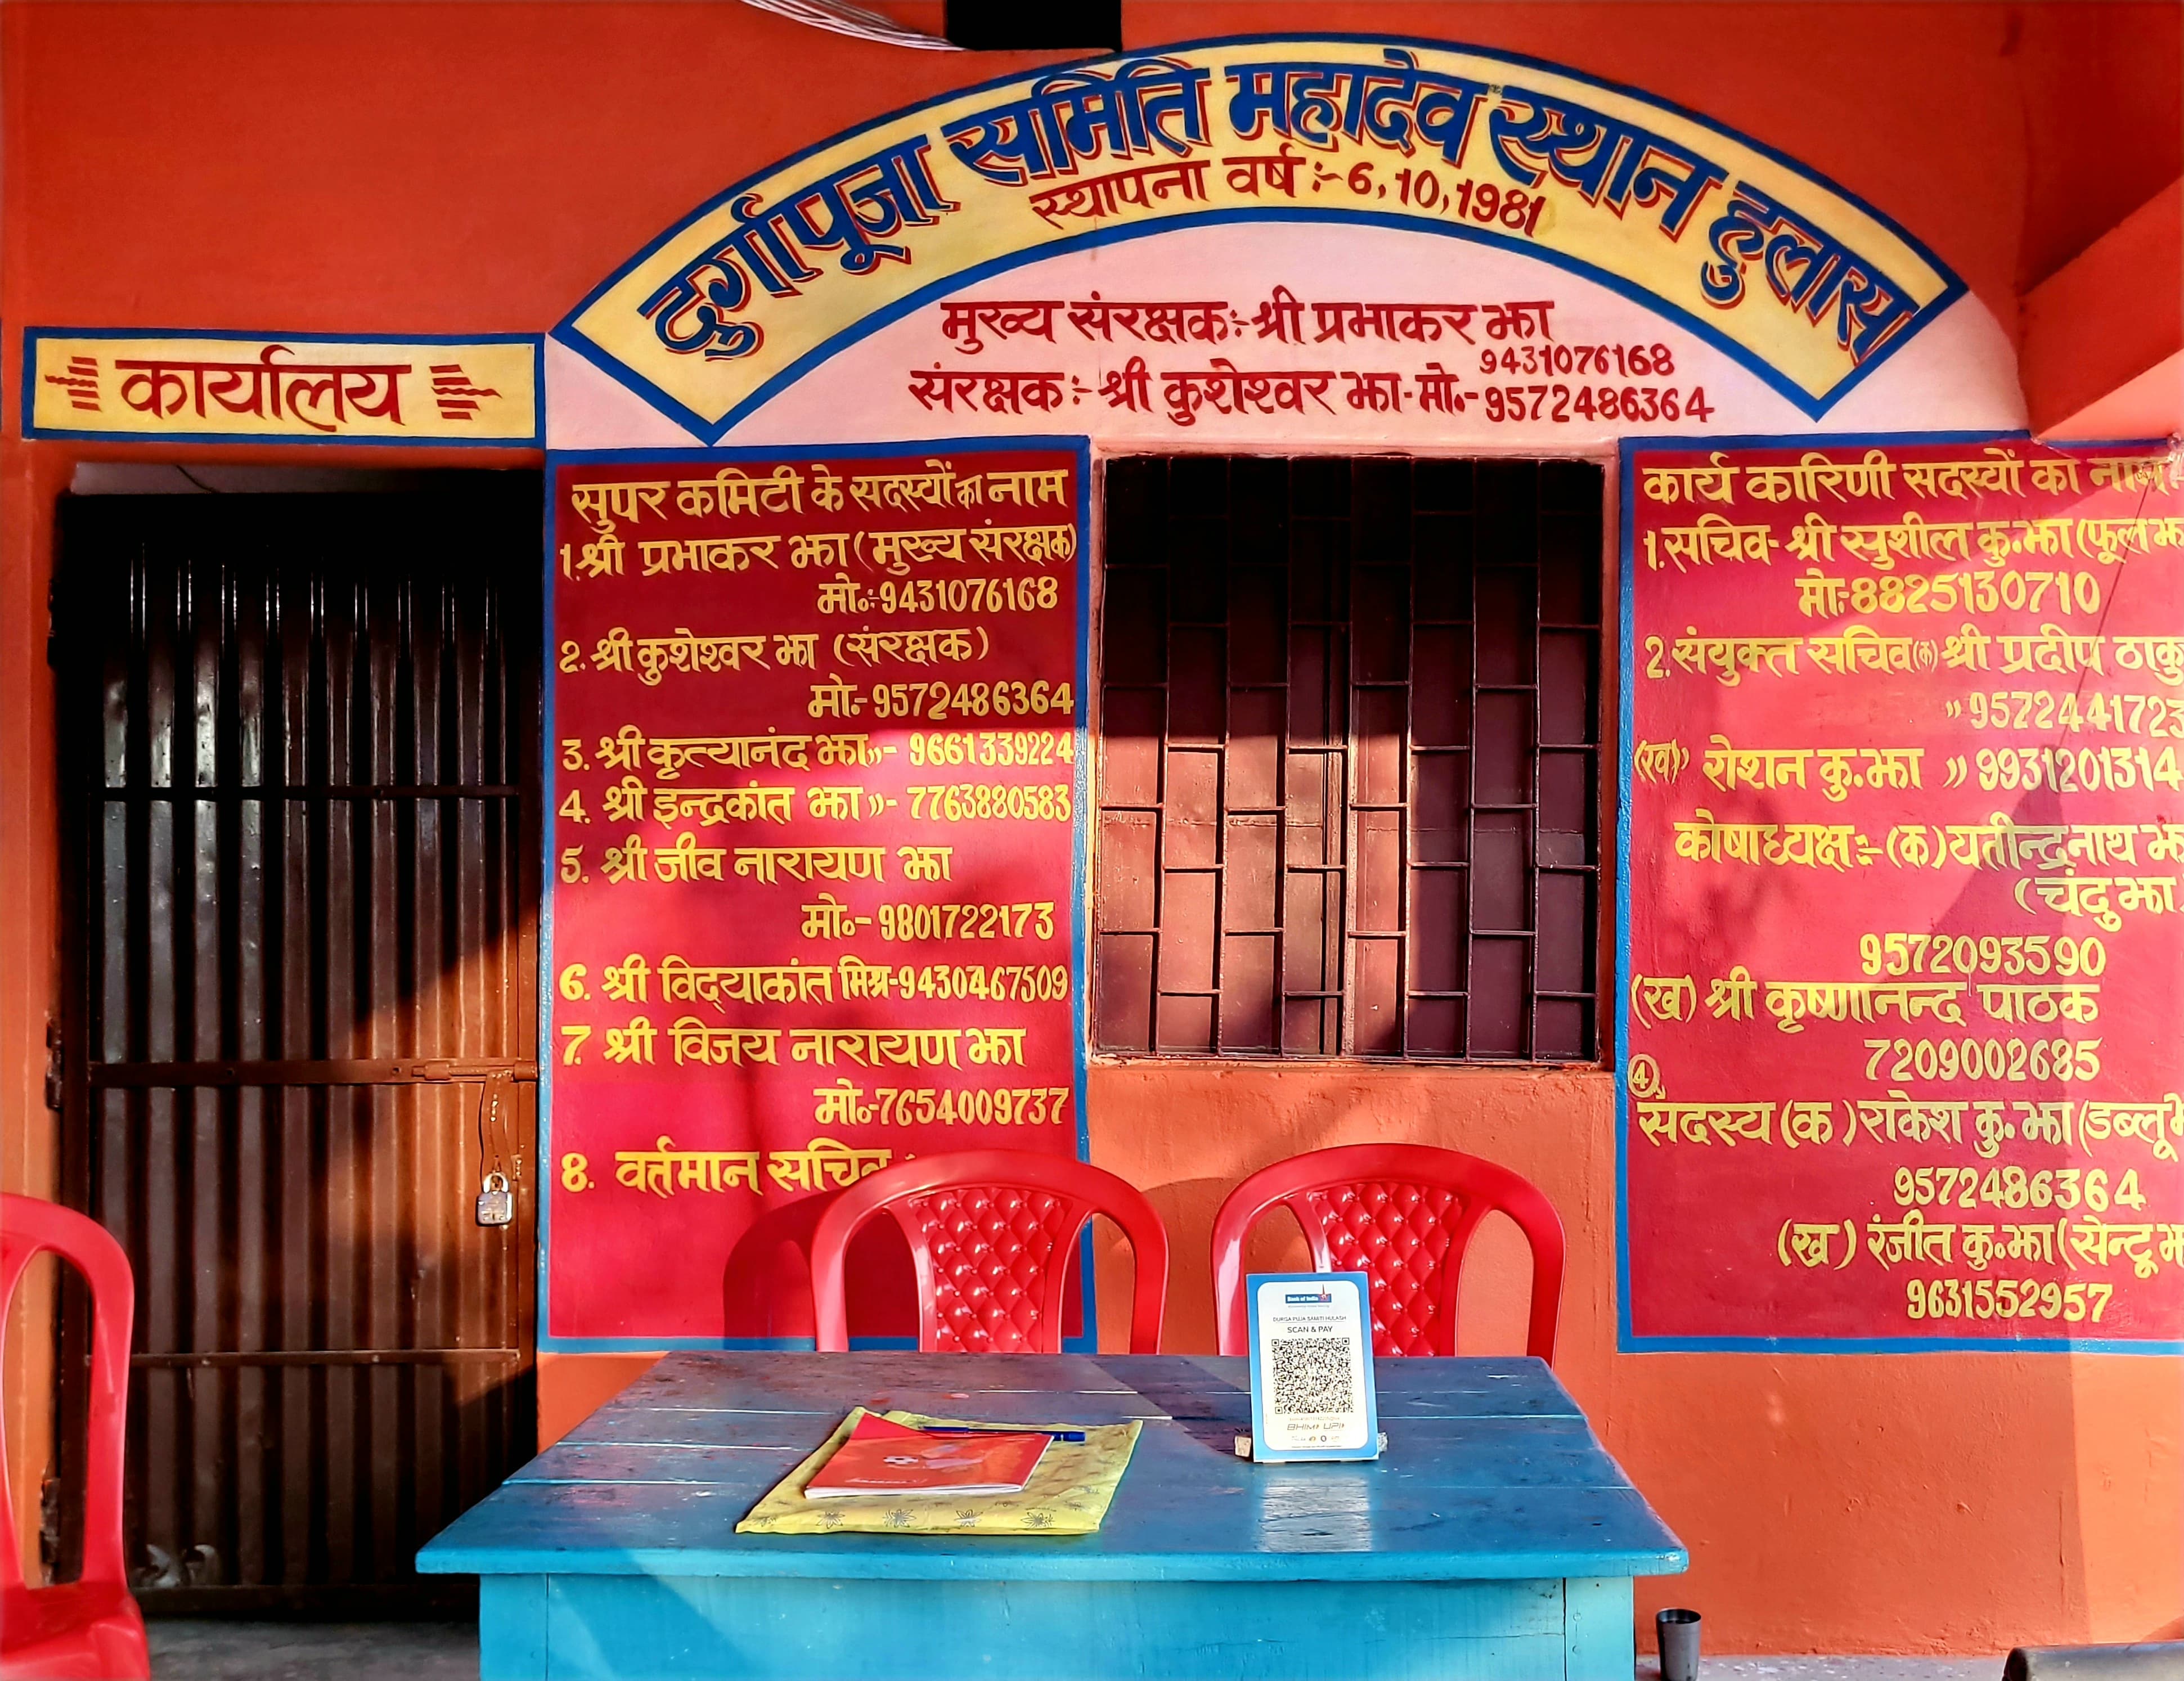 दुर्गापूजा समिति महादेव स्थान हुलास
स्थापना वर्ष :- 6, 10, 1981
मुख्य संरक्षक:- श्री प्रभाकर झा
9431076168
संरक्षक:- श्री कुशेश्वर झा- मो.- 9572486364
कार्यालय
सुपर कमिटी के सदस्यों का नाम
1. श्री प्रभाकर झा (मुख्य संरक्षक)
मो०:-9431076168
2. श्री कुशेश्वर झा (संरक्षक)
मो.- 9572486364
3. श्री कृत्यानंद झा ,,- 9661339224
4. श्री इन्द्रकांत झा ,,- 7763880583
5. श्री जीव नारायण झा
मो०- 9801722173
6. श्री विद्याकांत मिश्र-9430467509
7. श्री विजय नारायण झा
मो०-7654009737
8. वर्त्तमान सचिव
कार्य कारिणी सदस्यों का
1. सचिव- श्री सुशील कु. झा (फूल
मो:-8825130710
2. संयुक्त सचिव (क) श्री प्रदीप
,, 9572441723
(ख) ,, रोशन कु. झा ,, 9931201314
कोषाध्यक्ष:- (क) यतीन्द्र नाथ
(चंदु झा
9572093590
(ख) श्री कृष्णानन्द पाठक
7209002685
④
सदस्य (क) राकेश कु. झा (डब्लू
9572486364
(ख) रंजीत कु० झा (सेन्टू
9631552957
Bank of India
DURGA PUJA SAMITI HULASH
SCAN & PAY
BHIM UPI